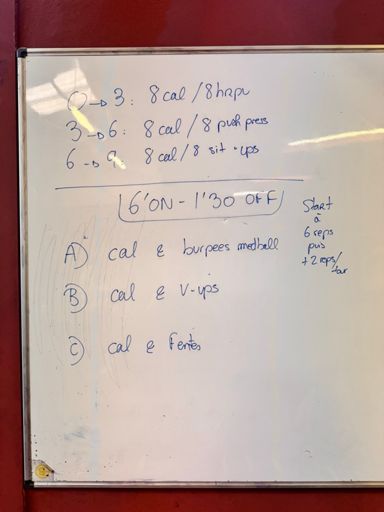 0 → 3: 8 cal / 8 hrpu
3 → 6: 8 cal / 8 push press
6 → 9: 8 cal / 8 sit-ups
6'ON - 1'30 OFF
A) cal & burpees medball
B) cal & V-ups
C) cal & Fentes
Start
à
6 reps
puis
+2 reps/
tour